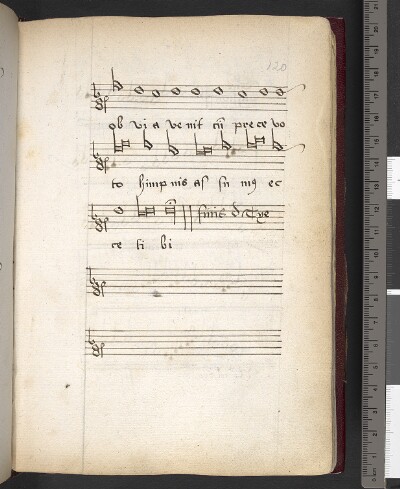 120
ob vi a ve nit cū prece vo
to himp nis as sū mꝰ ec
finis d Tye
ce ti bi